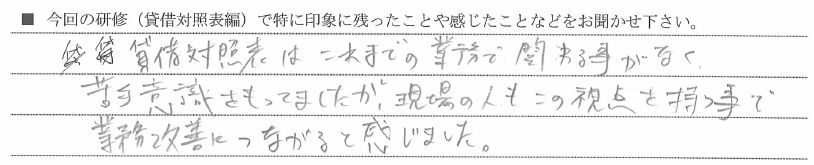 ■ 今回の研修（貸借対照表編）で特に印象に残ったことや感じたことなどをお聞かせ下さい。
貸借対照表はこれまでの業務で関わる事がなく
苦手意識をもってましたが、現場の人もこの視点を持つ事で
業務改善につながると感じました。